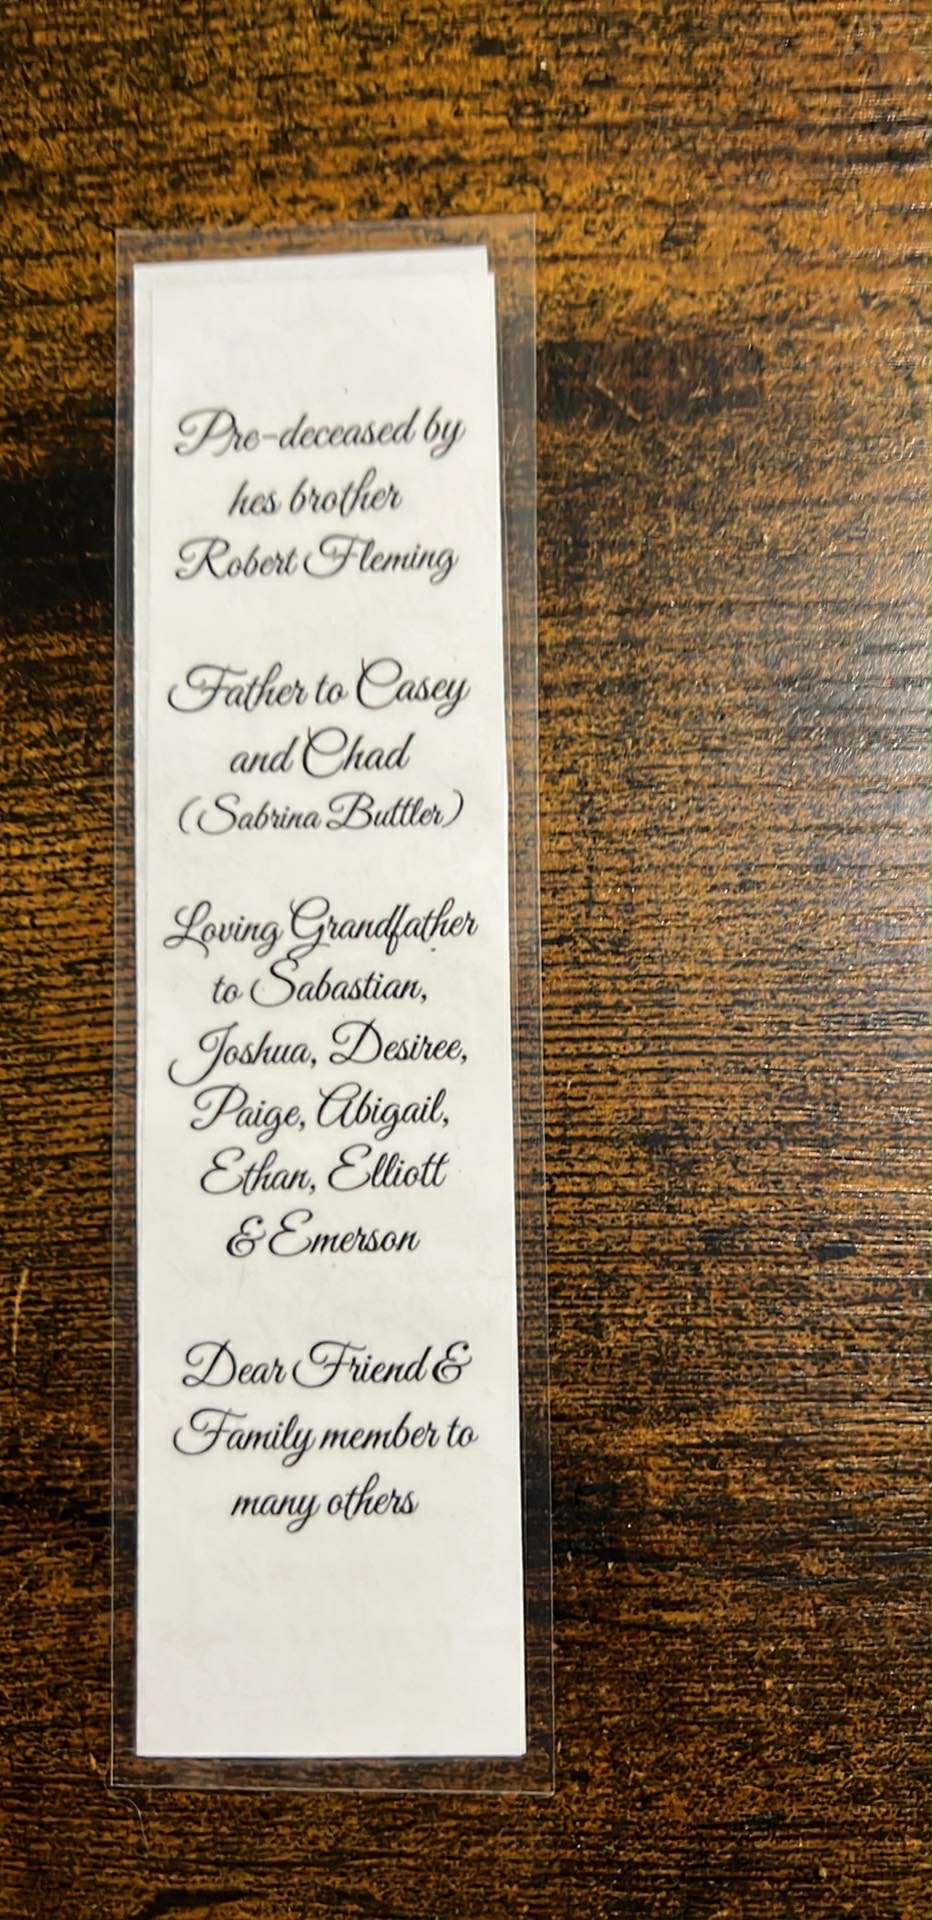 Pre-deceased by
hes brother
Robert Fleming
Father to Casey
and Chad
(Sabrina Buttler)
Loving Grandfather
to Sabastian,
Joshua, Desiree,
Paige, Abigail,
Ethan, Elliott
& Emerson
Dear Friend &
Family member to
many others